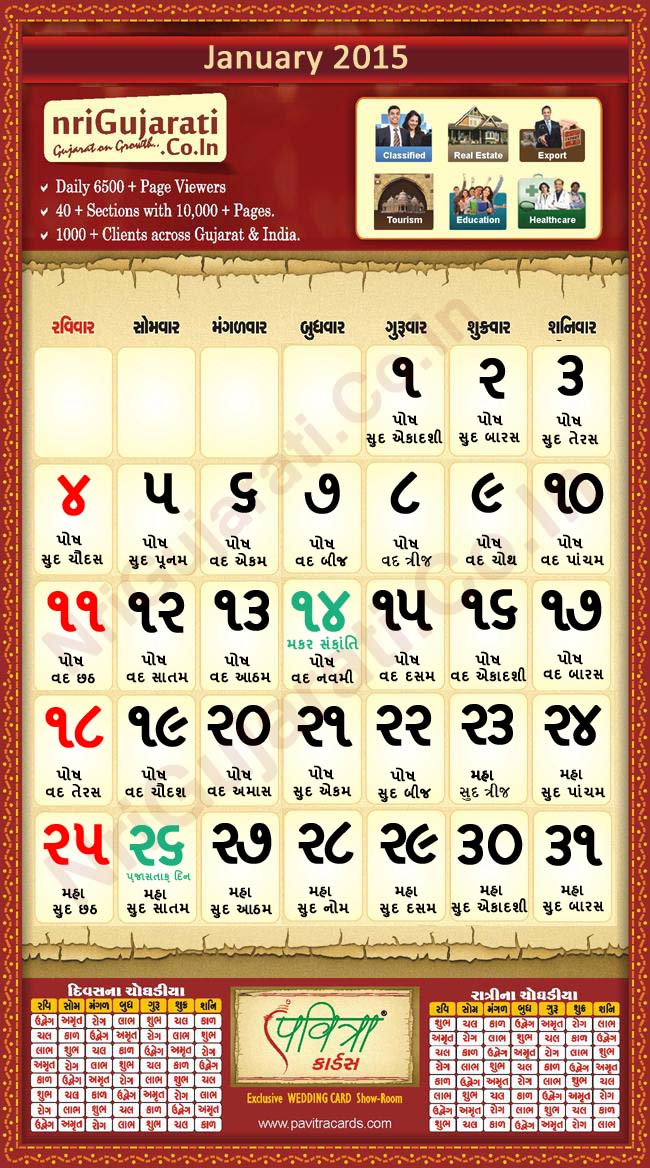 January 2015
nriGujarati
Gujarat on Growth..
.Co.In
Daily 6500 + Page Viewers
40 + Sections with 10,000 + Pages.
1000 + Clients across Gujarat & India.
Classified Real Estate Export
Tourism Education Healthcare
રવિવાર સોમવાર મંગળવાર બુધવાર ગુરૂવાર શુક્રવાર શનિવાર
૧ ૨ ૩
પોષ પોષ પોષ
સુદ એકાદશી સુદ બારસ સુદ તેરસ
૪ ૫ ૬ ૭ ૮ ૯ ૧૦
પોષ પોષ પોષ પોષ પોષ પોષ પોષ
સુદ ચૌદસ સુદ પૂનમ વદ એકમ વદ બીજ વદ ત્રીજ વદ ચોથ વદ પાંચમ
૧૧ ૧૨ ૧૩ ૧૪ ૧૫ ૧૬ ૧૭
મકર સંક્રાંતિ
પોષ પોષ પોષ પોષ પોષ પોષ પોષ
વદ છઠ વદ સાતમ વદ આઠમ વદ નવમી વદ દસમ વદ એકાદશી વદ બારસ
૧૮ ૧૯ ૨૦ ૨૧ ૨૨ ૨૩ ૨૪
પોષ પોષ પોષ પોષ પોષ મહા મહા
વદ તેરસ વદ ચૌદશ વદ અમાસ સુદ એકમ સુદ બીજ સુદ ત્રીજ સુદ પાંચમ
૨૫ ૨૬ ૨૭ ૨૮ ૨૯ ૩૦ ૩૧
પ્રજાસતાક દિન
મહા મહા મહા મહા મહા મહા મહા
સુદ છઠ સુદ સાતમ સુદ આઠમ સુદ નોમ સુદ દસમ સુદ એકાદશી સુદ બારસ
દિવસના ચોઘડીયા
રવિ સોમ મંગળ બુધ ગુરૂ શુક્ર શનિ
ઉદ્વેગ અમૃત રોગ લાભ શુભ ચલ કાળ
ચલ કાળ ઉદ્વેગ અમૃત રોગ લાભ શુભ
લાભ શુભ ચલ કાળ ઉદ્વેગ અમૃત રોગ
અમૃત રોગ લાભ શુભ ચલ કાળ ઉદ્વેગ
કાળ ઉદ્વેગ અમૃત રોગ લાભ શુભ ચલ
શુભ ચલ કાળ ઉદ્વેગ અમૃત રોગ લાભ
રોગ લાભ શુભ ચલ કાળ ઉદ્વેગ અમૃત
ઉદ્વેગ અમૃત રોગ લાભ શુભ ચલ કાળ
પવિત્રા®
કાર્ડસ
Exclusive WEDDING CARD Show-Room
www.pavitracards.com
રાત્રીના ચોઘડીયા
રવિ સોમ મંગળ બુધ ગુરૂ શુક્ર શનિ
શુભ ચલ કાળ ઉદ્વેગ અમૃત રોગ લાભ
અમૃત રોગ લાભ શુભ ચલ કાળ ઉદ્વેગ
ચલ કાળ ઉદ્વેગ અમૃત રોગ લાભ શુભ
રોગ લાભ શુભ ચલ કાળ ઉદ્વેગ અમૃત
કાળ ઉદ્વેગ અમૃત રોગ લાભ શુભ ચલ
લાભ શુભ ચલ કાળ ઉદ્વેગ અમૃત રોગ
ઉદ્વેગ અમૃત રોગ લાભ શુભ ચલ કાળ
શુભ ચલ કાળ ઉદ્વેગ અમૃત રોગ લાભ
NriGujarati.Co.In
NriGujarati.Co.In